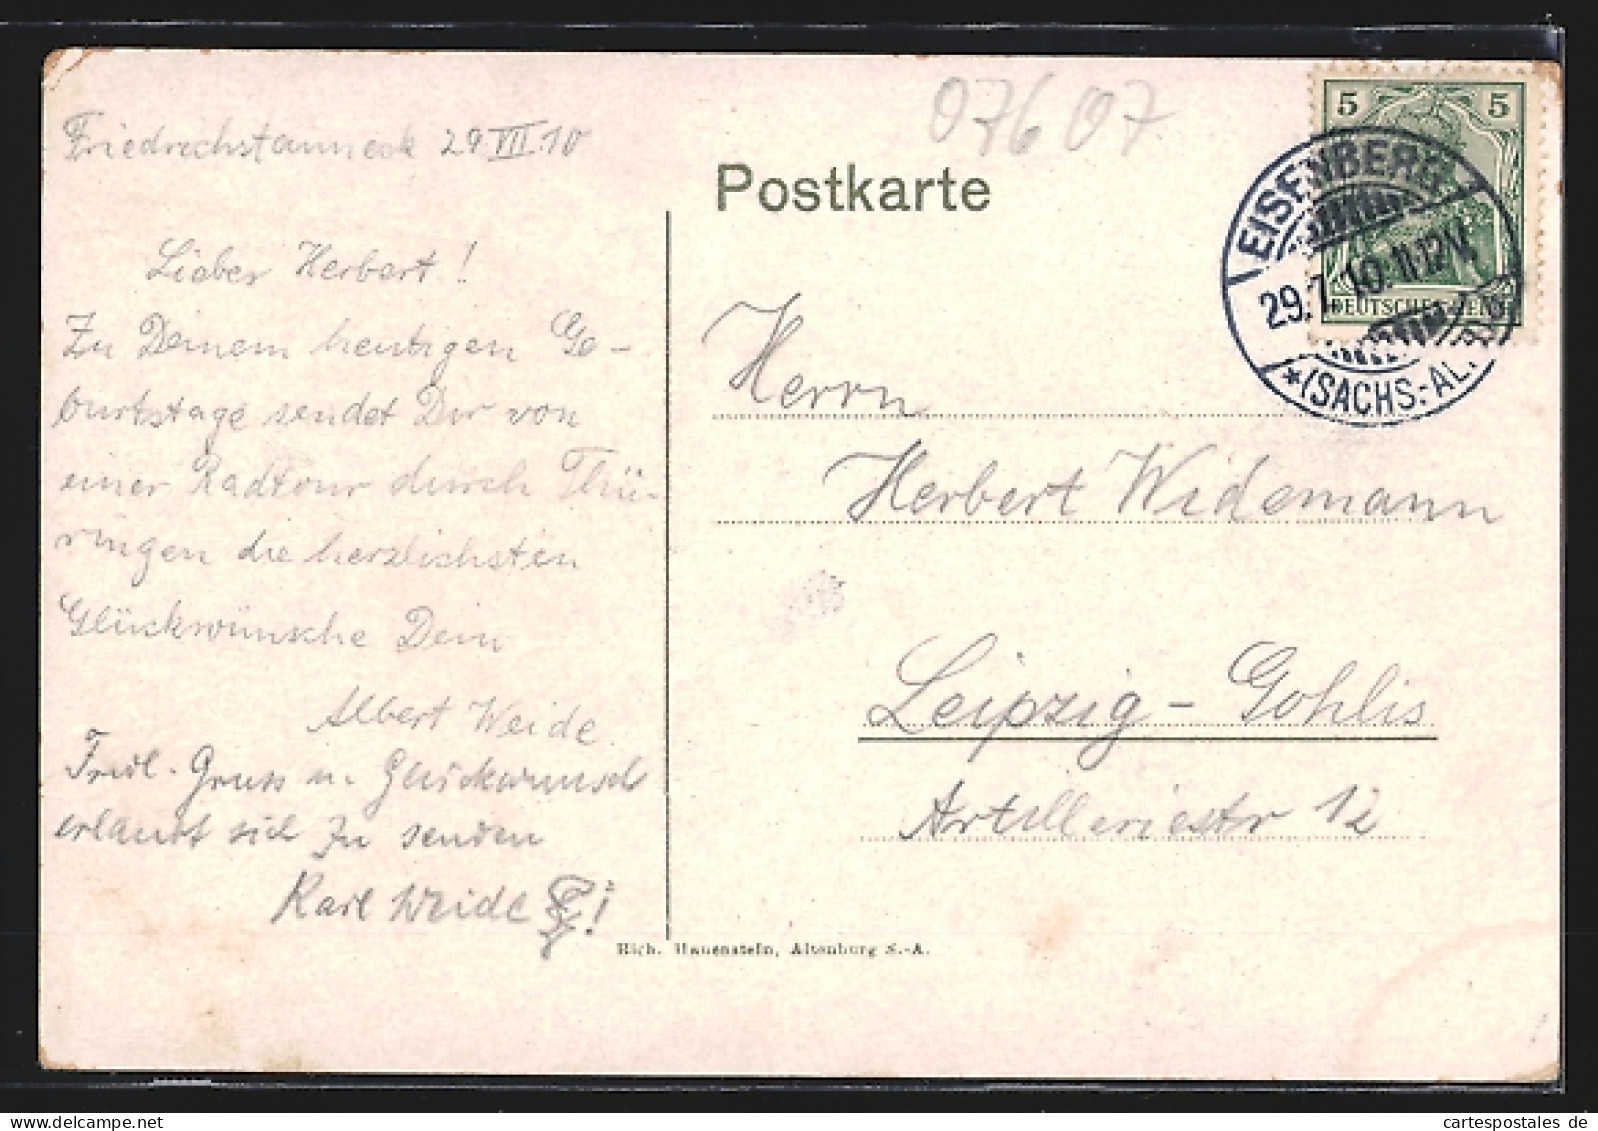 Friedrichstanneck 29 VII.10
Lieber Herbert!
Zu Deinem heutigen Ge-
burtstage sendet Dir von
einer Radtour durch Thü-
ringen die herzlichsten
Glückwünsche Dein
Albert Weide.
Frdl. Gruss u. Glückwunsch
erlaubt sich zu senden
Karl Weide
07607
Postkarte
5 5
DEUTSCHES REICH
EISENBERG
29.7.10.11-12V.
*(SACHS.-AL.
Herrn
Herbert Widemann
Leipzig-Gohlis
Artilleriestr 12
Rich. Hauenstein, Altenburg S.-A.
cartespostales de